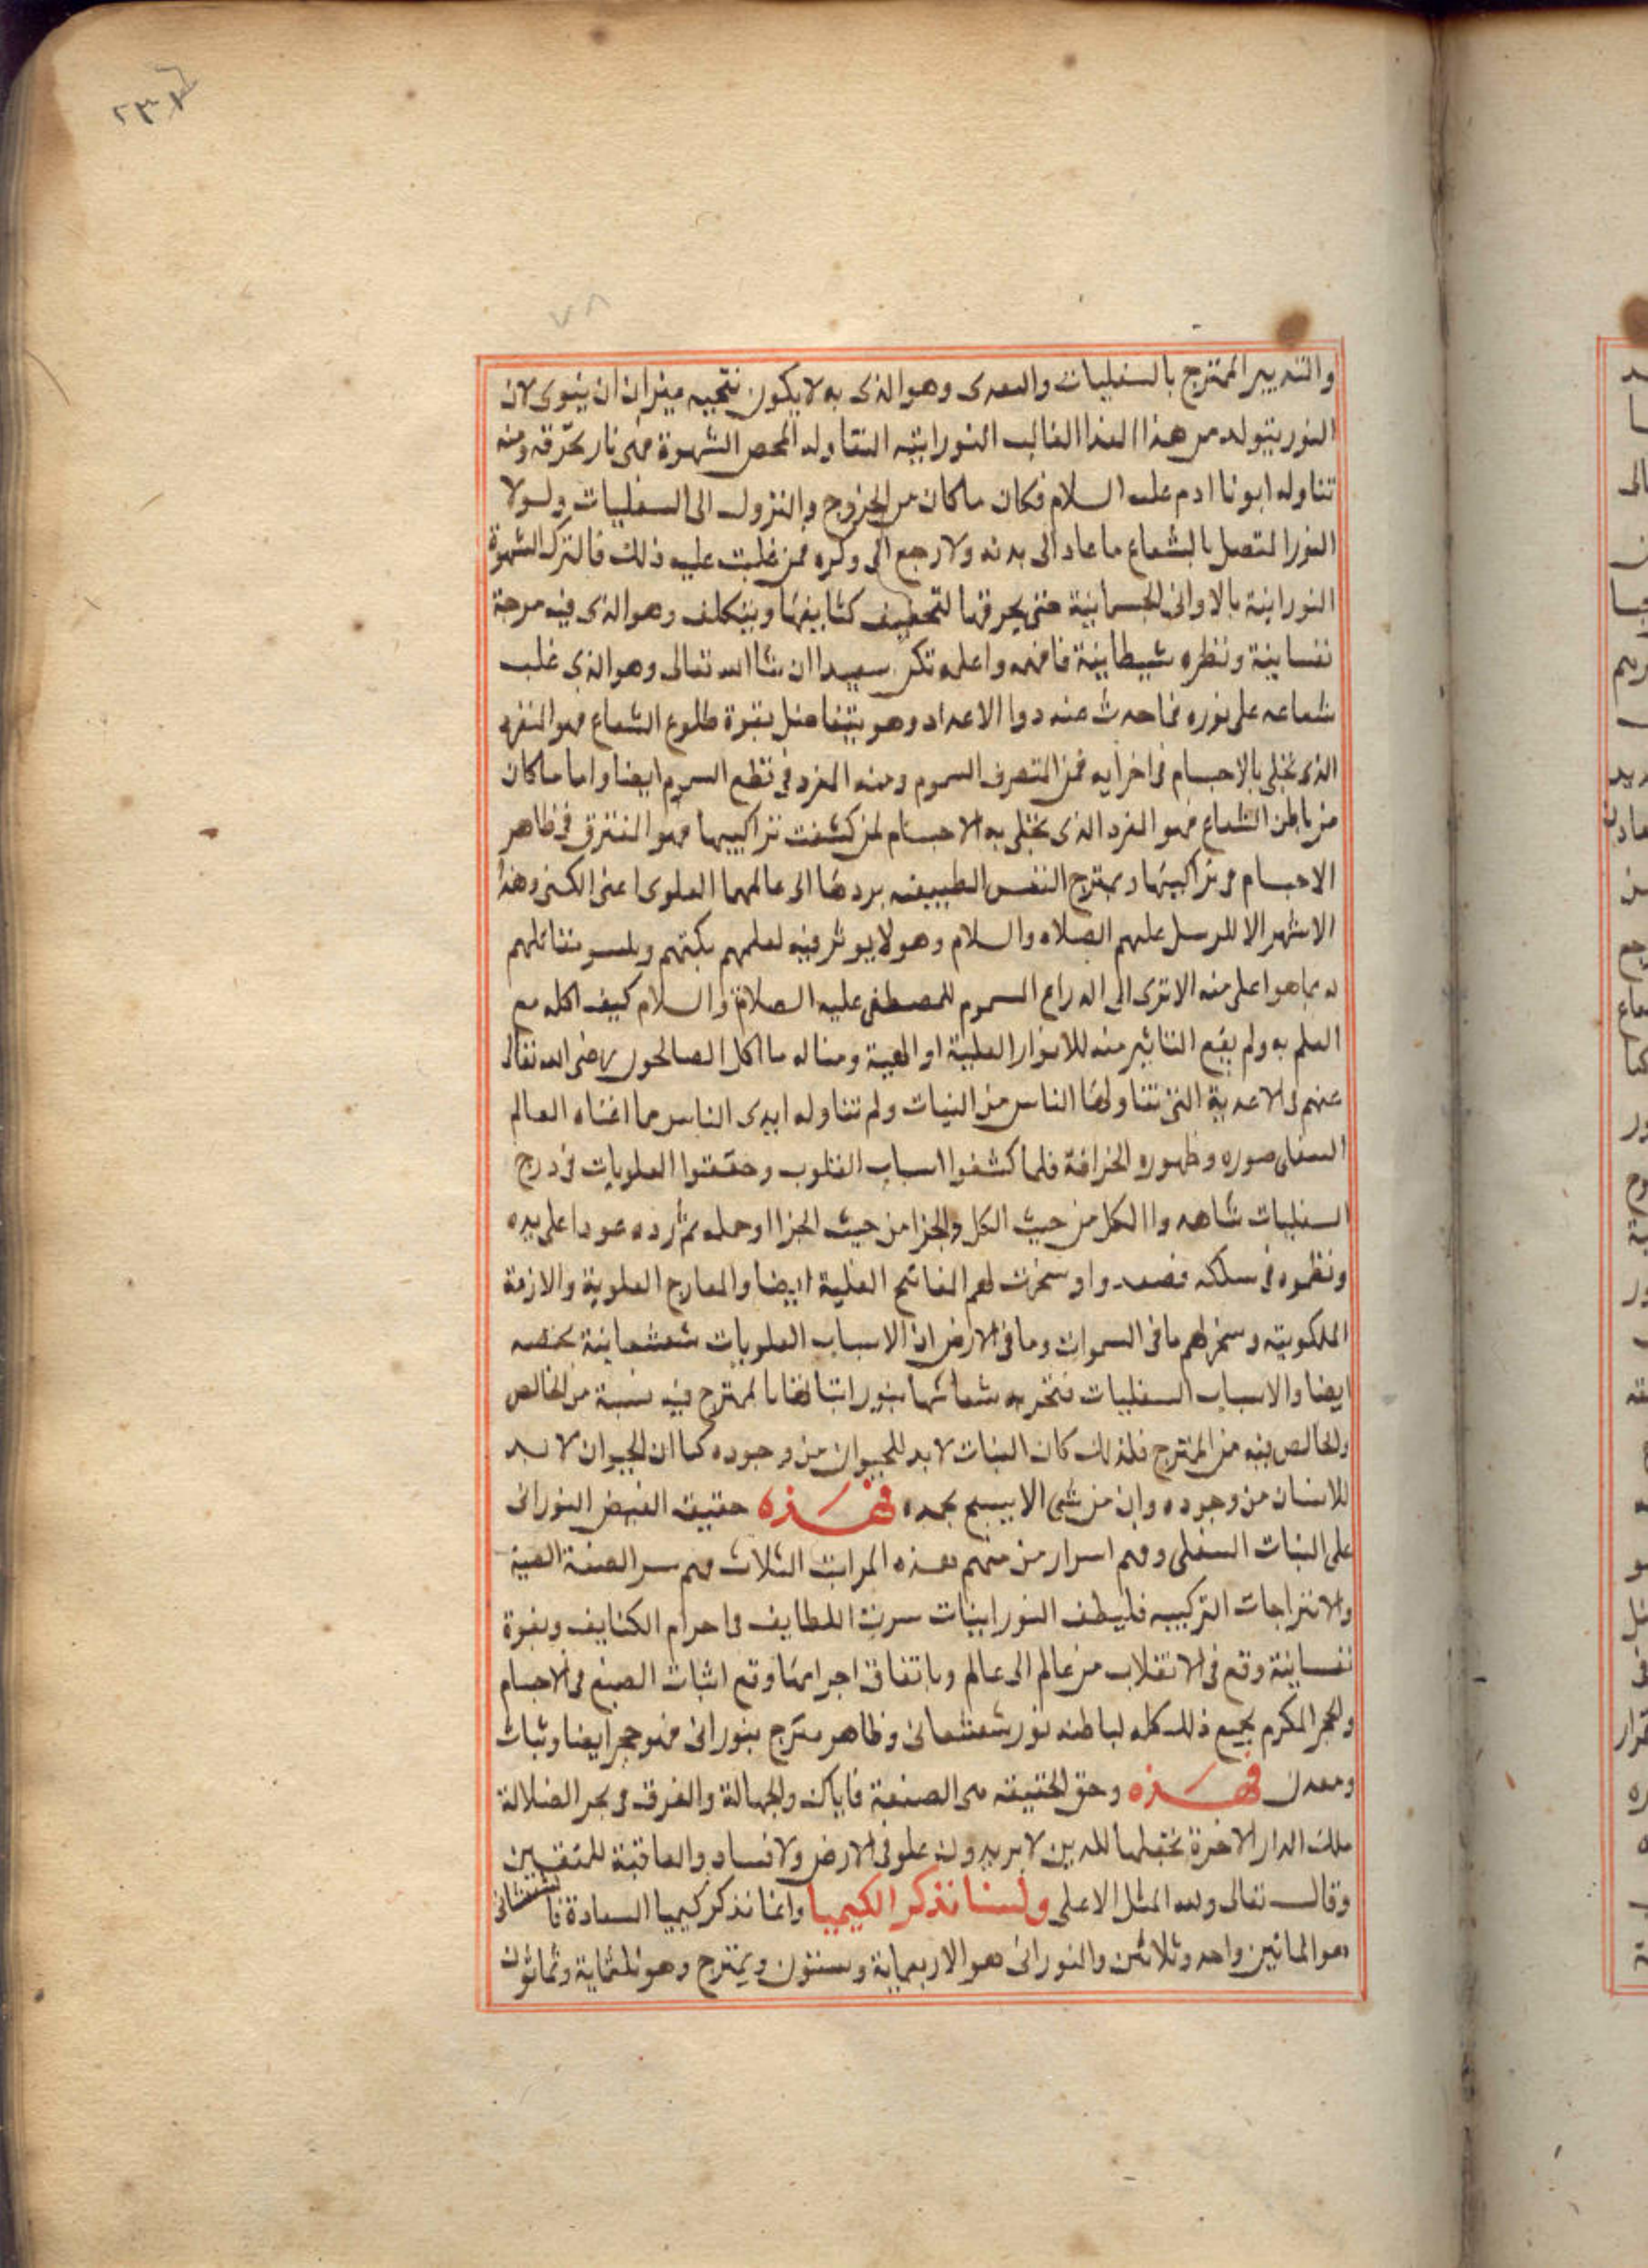 ٢٣٧
٧٨
والتدبير الممتزج بالسفليات والمعدى وهو الذى به لا يكون نتيجه ميزان ان ينوى لان
النور يتولد من هذا الغذا الغالب النورانيه التقا وله المحص الشهوة فهى نار تحرقه ومنه
تناوله ابونا ادم عليه السلام فكان ما كان من الخروج والنزول الى السفليات ولولا
النور المتصل بالشعاع ما عاد الى بدنه ولا رجع الى وكره فمن غلبت عليه ذلك فالترك الشهوة
النورانية بالاوانى الجسمانية حتى يحرقها لتخفيف كثايفها ويتكلف وهو الذى فيه مرجة
نفسانية ونظره شيطانية فافهمه واعلمه تكن سعيدا ان شا الله تعالى وهو الذى غلب
شعاعه على نوره فما حدث عنه دوا الاعداد وهو يتفاضل بقوة طلوع الشعاع فهو النفر
الذى تخلى بالاجسام فى اخرايه فمن المتصرف السموم ومنه المفرد فى نظم السموم ايضا واما ما كان
من باطن الشعاع فهو الفرد الذى تخلى به الاجسام لمن كشفت تراكيبها فهو المفترق فى ظاهر
الاجسام فى تراكيبها ويمتزج النفس الطبيعيه بردها الى عالمهما العلوى اعنى الكنى وهذا
الاشهر الا للمرسل عليهم الصلاه والسلام وهو لا يوثر فيه لعلمهم
له بما هو اعلى منه الا ترى الى الدراع السموم للمصطفى عليه الصلاة والسلام كيف اكله مع
العلم به ولم يقع التاثير منه للانوار العلية او المعية ومثاله ما اكل الصالحون رضى الله تعالى
عنهم فى الاغدية التى تناولها الناس من النبات ولم تناوله ايدى الناس مما اغناه العالم
السفلى صوره وظهوره الخرافة فلما كشفوا اسباب القلوب وحققوا العلويات فى درج
السفليات شاهدوا الكل من حيث الكل والجزا من حيث الجزا وحمله ثم رده عودا على بده
ونظموه فى سلكه فصعدوا وسخرت لهم المفاتح العلية ايضا والمعارج العلوية والازمة
الملكوتيه وسخر لهم ما فى السموات وما فى الارض ان الاسباب العلويات شعشعانية محضه
ايضا والاسباب السفليات شعاشها بنور اتباتها بالممتزج فيه نسبة من الخالص
والخالص فيه من الممتزج فلذلك كان النبات لا بد للحيوان من وجوده كما ان الحيوان لا بد
للانسان من وجوده وان من شى الا يسبح بحمده فهذه حقيقة الفيض النورانى
على النبات السفلى وفهم اسرار من فهم هذه المراتب الثلاث فهم سر الصنعة العية
والامتزاجات التركيبيه فلطف النورانيات سرت اللطايف فى اجرام الكثايف وبقوة
نفسانية وقع فى الانقلاب من عالم الى عالم وباتفاق اجرامها وقع اثبات الصبغ فى الاجسام
والحجر المكرم يجمع ذلك كله لباطنه نور شعشعانى وظاهر ممتزج بنورانى فهو حجر ايضا ونبات
ومعدن فهذه وحق الحقيقه هى الصنعة فاياك والجهالة والغرق فى بحر الضلالة
ملك الدار الاخرة نجعلها للذين لا يريدون علو فى الارض ولا فساد والعاقبة للمتقين
وقال تعالى ولله المثل الاعلى ولسنا نذكر الكيميا وانما نذكر كيميا السعادة فالشعشعانى
هو المائتين واحد وثلاثين والنورانى هو الاربعماية وستون ويمتزج وهو ثلثماية وثمانون